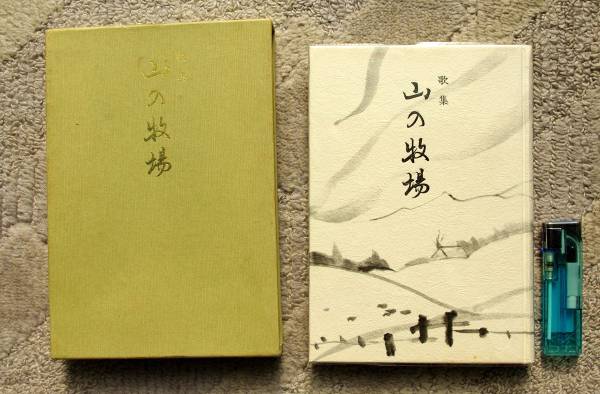 歌集
山の牧場
歌集
山の牧場